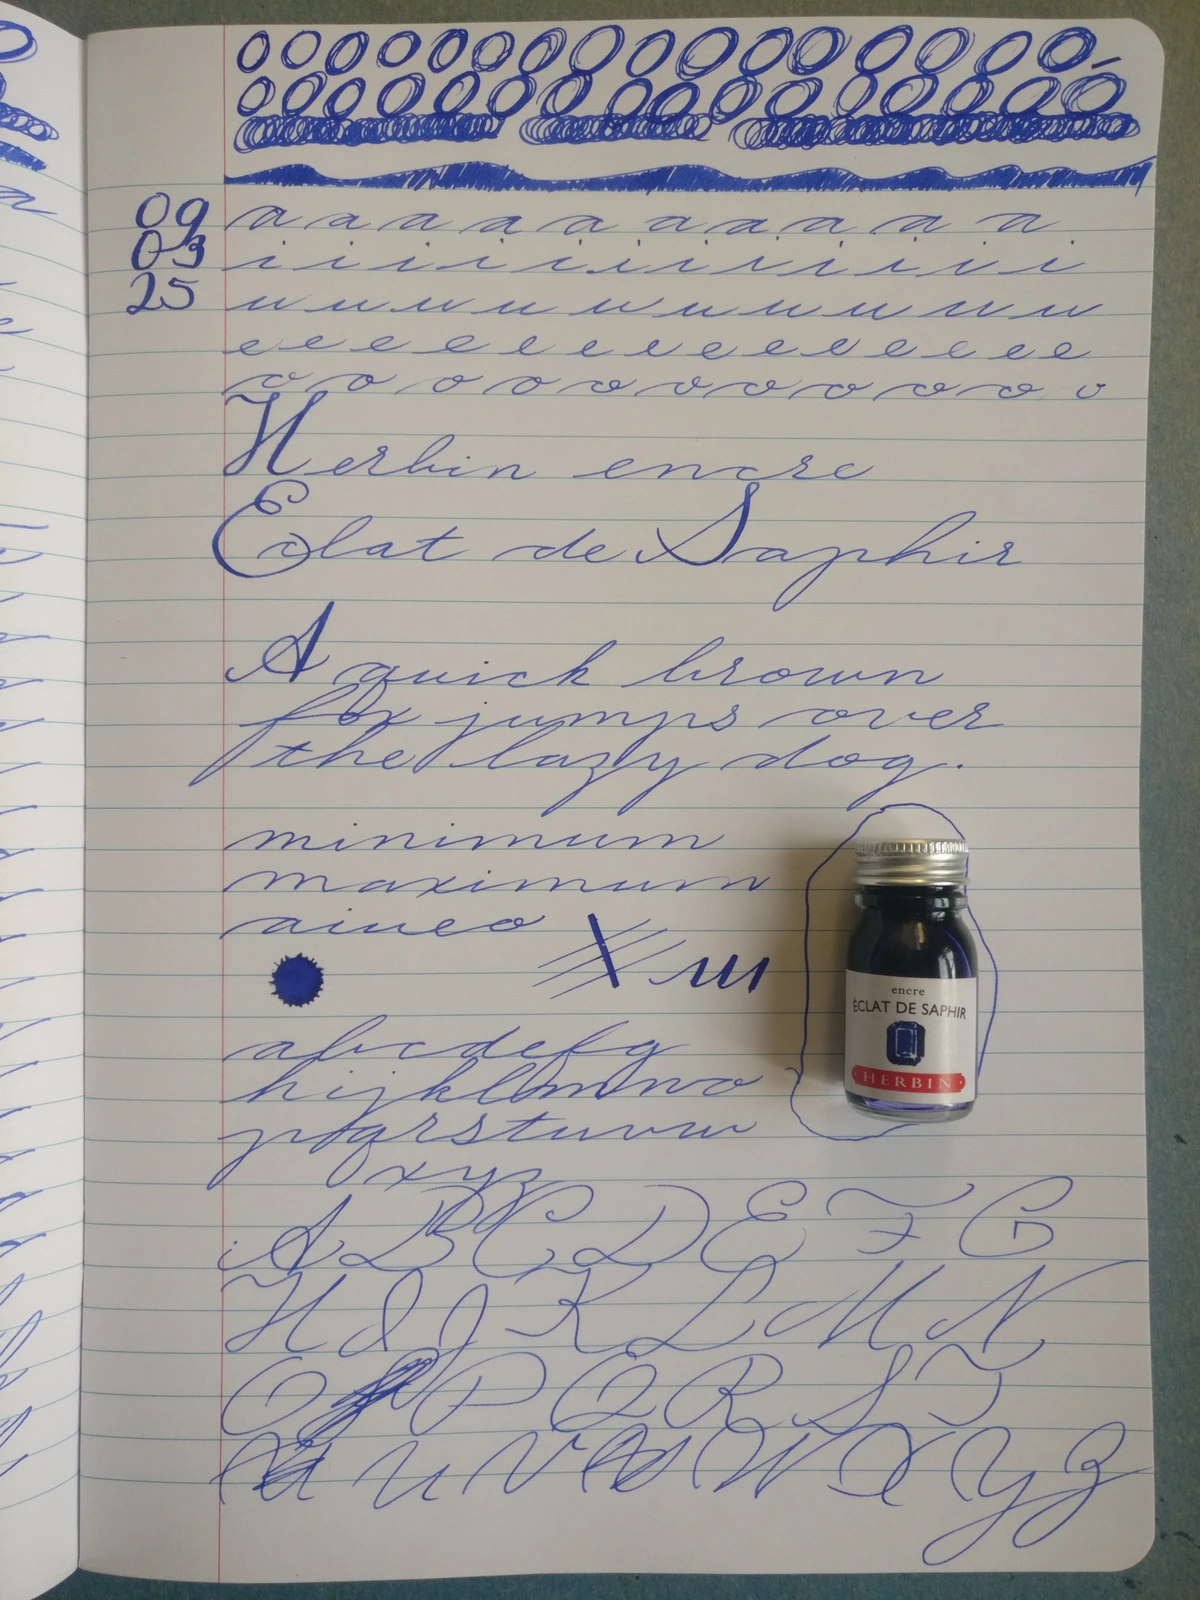 09
03
25
a a a a a a a a a a a a
i i i i i i i i i i i i i i
u u u u u u u u u u u u
e e e e e e e e e e e e e e e
o o o o o o o o o o o o
Herbin encre
Eclat de Saphir
A quick brown
fox jumps over
the lazy dog.
minimum
maximum
aiueo
encre
ÉCLAT DE SAPHIR
HERBIN
abcdefg
hijklmno
pqrstuvw
xyz
A B C D E F G
H I J K L M N
O P Q R S T
U V W X Y Z